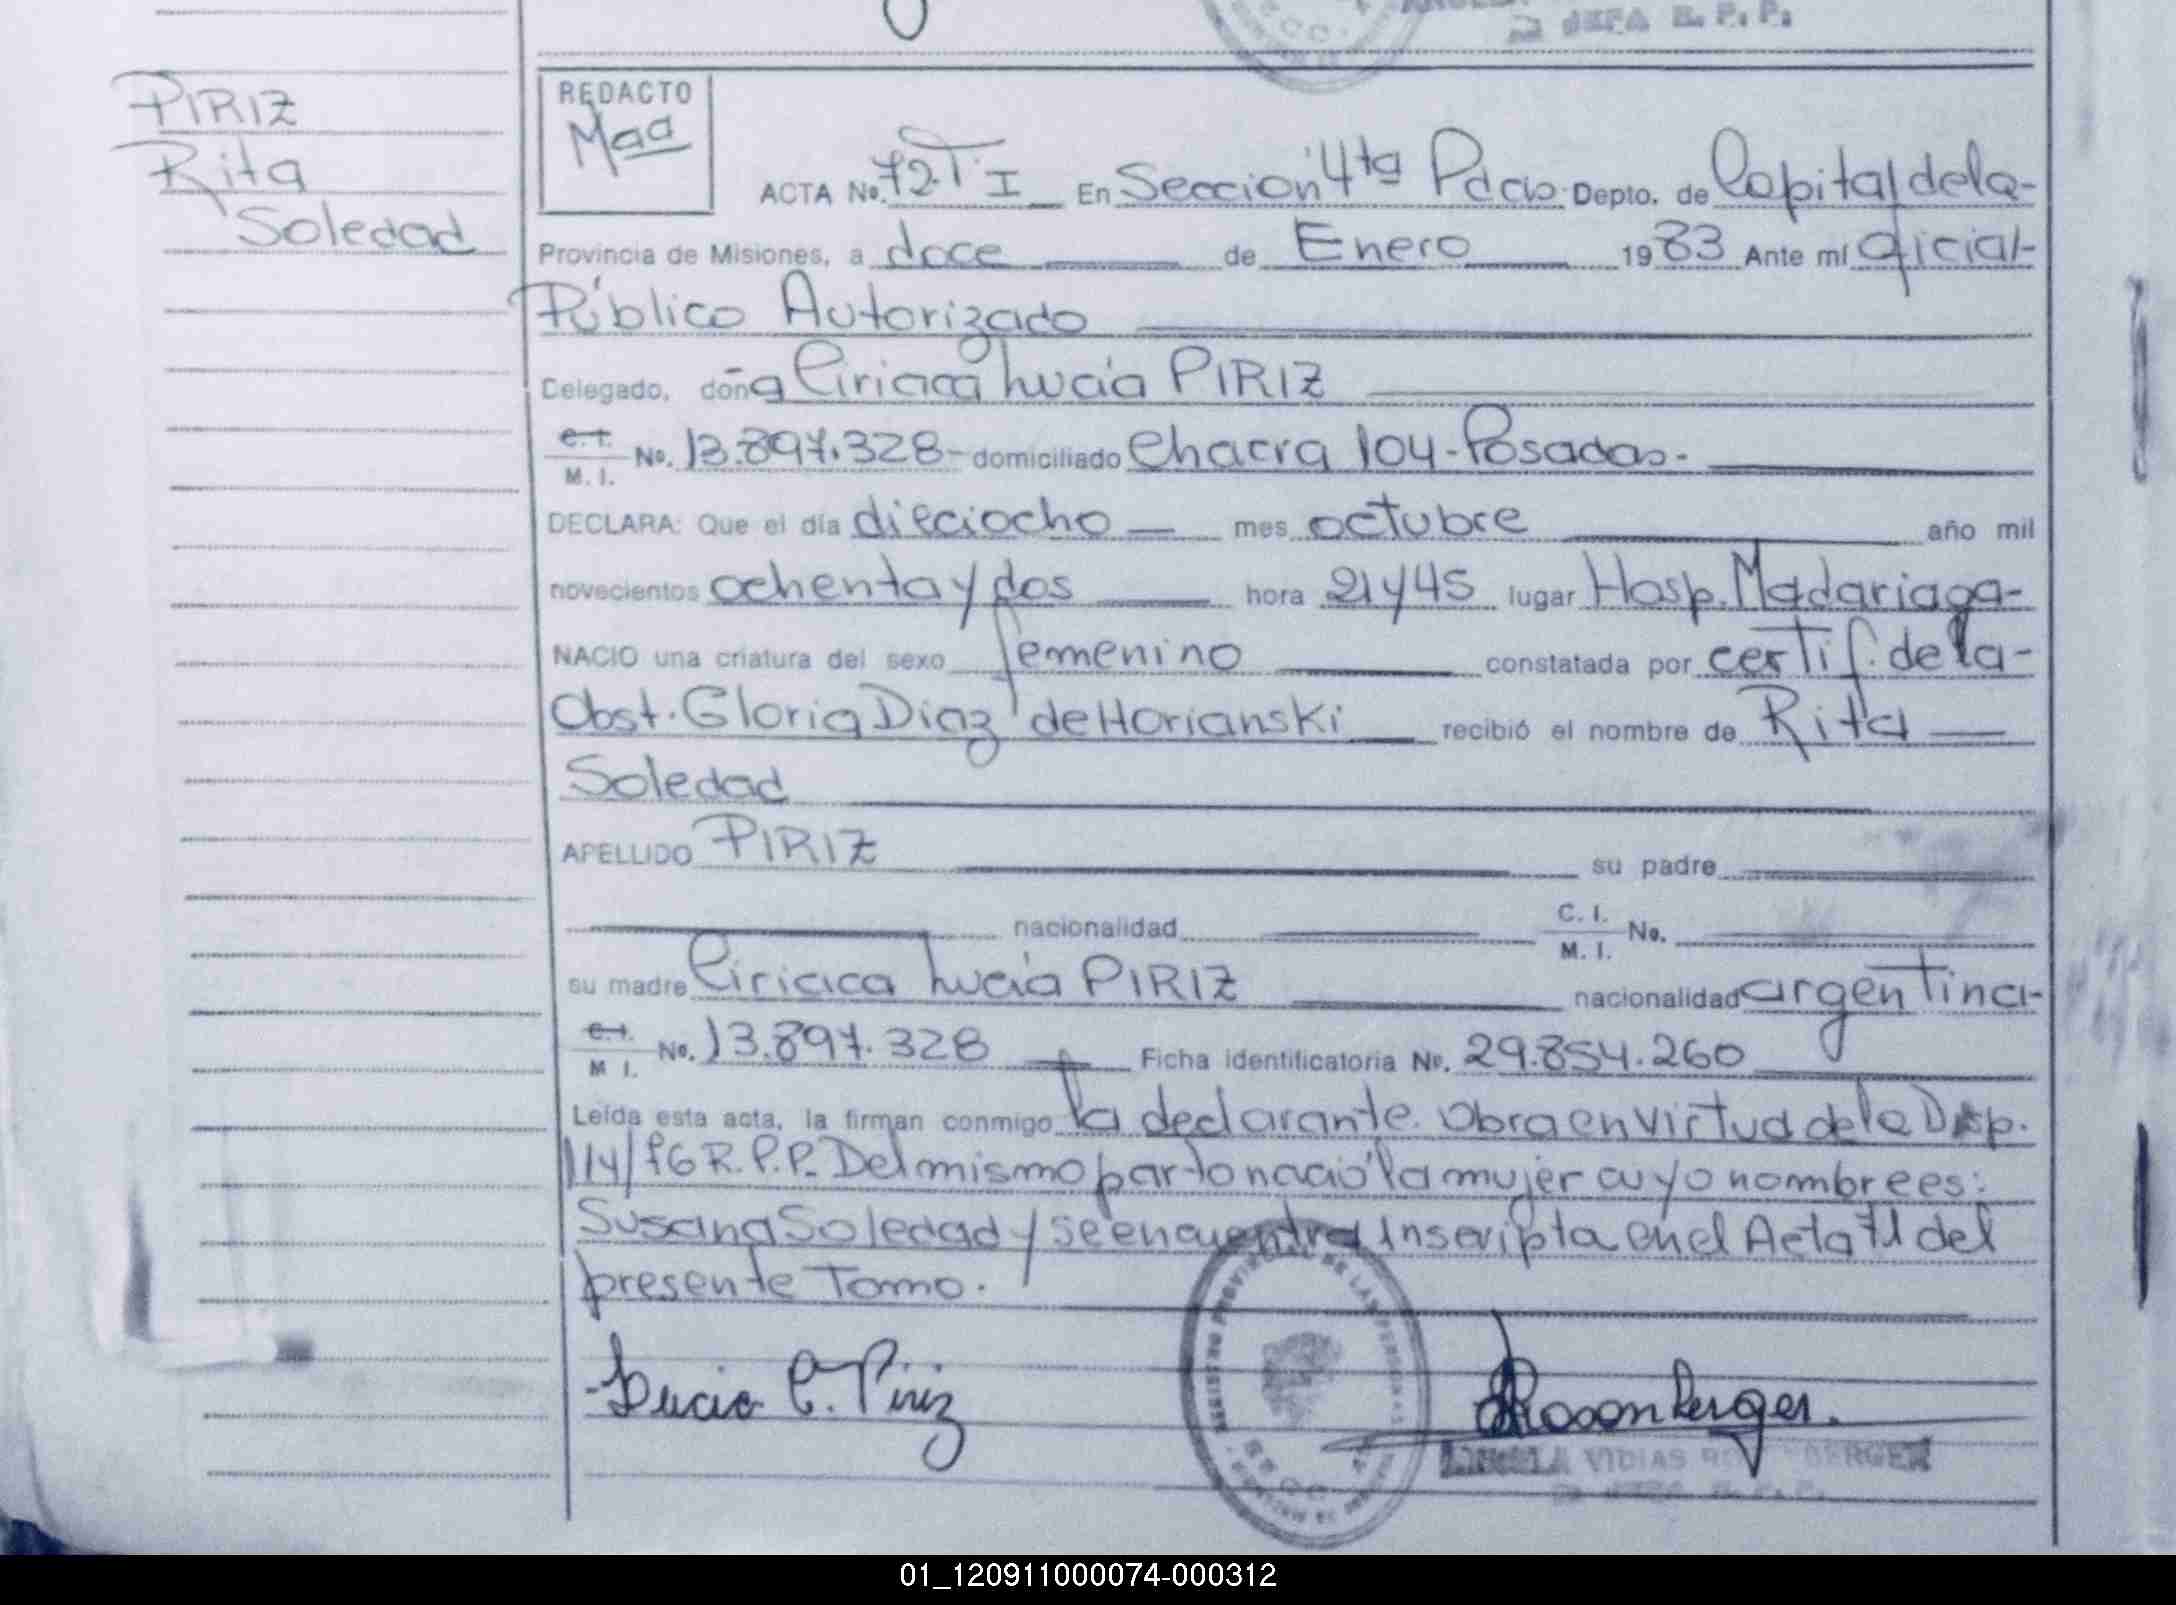 JEFA R. P. P.
PIRIZ
Rita
Soledad
REDACTO
Maa
ACTA No. 72-T I En Sección 4ta Pdas. Depto. de Capital de la-
Provincia de Misiones, a doce de Enero 1983 Ante mí Oficial-
Público Autorizado
Delegado, doña Ciriaca Lucía PIRIZ
C. I.
M. I. No. 13.897.328- domiciliado Chacra 104-Posadas.-
DECLARA: Que el día dieciocho mes octubre año mil
novecientos ochenta y dos hora 21 y 45 lugar Hosp. Madariaga-
NACIO una criatura del sexo femenino constatada por certif. de la-
Obst. Gloria Diaz de Horianski recibió el nombre de Rita
Soledad
APELLIDO PIRIZ su padre
nacionalidad C. I.
M. I. No.
su madre Ciriaca Lucía PIRIZ nacionalidad argentina-
C. I.
M I. No. 13.897.328 Ficha identificatoria No. 29.854.260
Leída esta acta, la firman conmigo la declarante. Obra en virtud de la Disp.
114/76 R.P.P. Del mismo parto nació la mujer cuyo nombre es:
Susana Soledad y se encuentra Inscripta en el Acta 71 del
presente Tomo.
Lucia C. Piriz
Rosenberger.
VIDIAS ROSENBERGER
JEFA R. P. P.
01_120911000074-000312